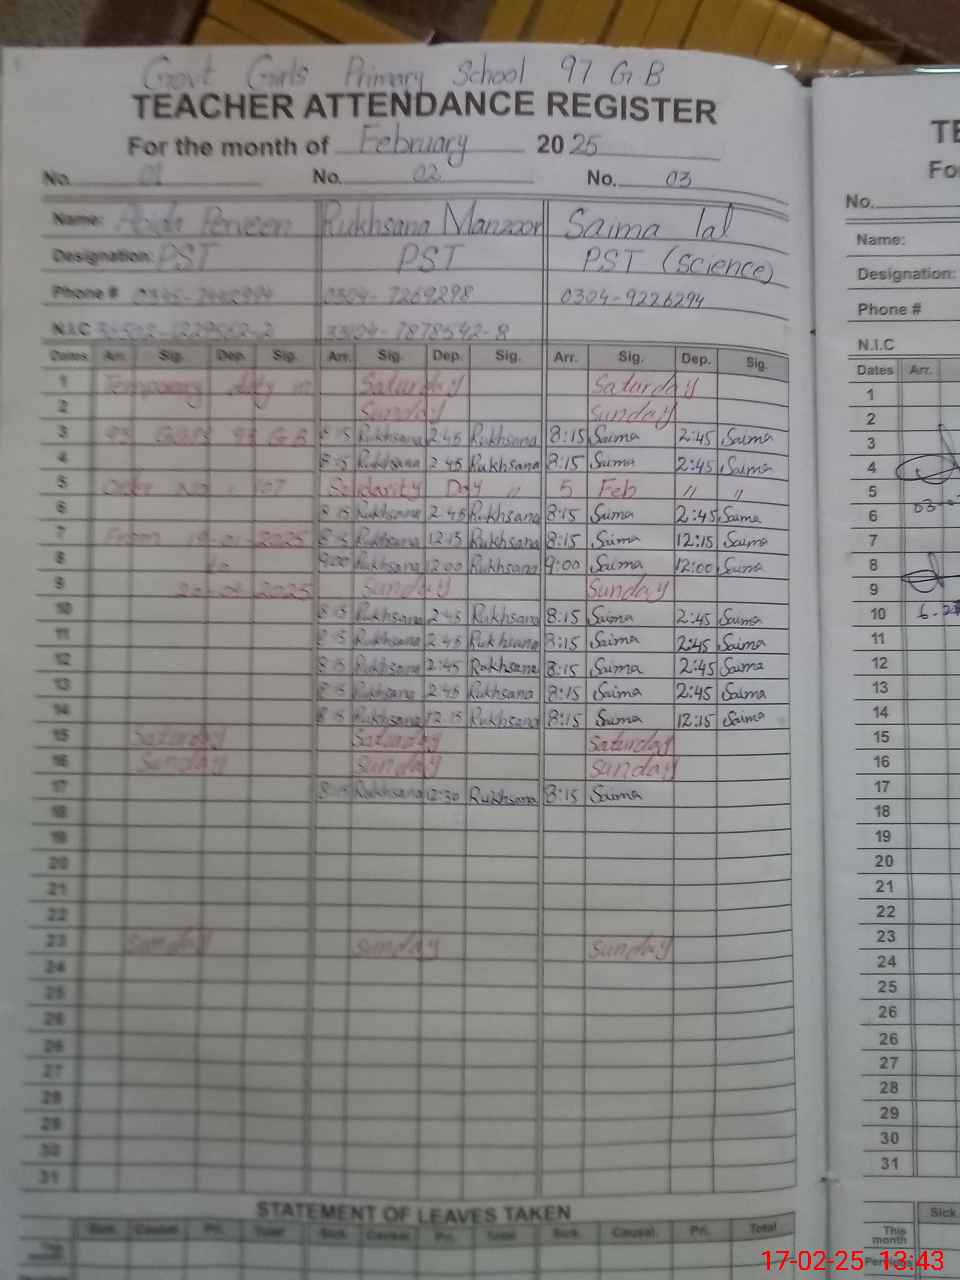 Govt Girls Primary School 97 G.B
TEACHER ATTENDANCE REGISTER
For the month of February 2025
No. 01 No. 02 No. 03
Name: Perveen Rukhsana Manzoor Saima lal
Designation: PST PST PST (science)
Phone # 0304-7269298 0304-9226294
N.I.C
Dates Arr. Sig. Dep. Sig. Arr. Sig. Dep. Sig. Arr. Sig. Dep. Sig.
1 Temporary duty in Saturday Saturday
2 Sunday Sunday
3 8:15 Rukhsana 2:45 Rukhsana 8:15 Saima 2:45 Saima
4 8:15 Rukhsana 2:45 Rukhsana 8:15 Saima 2:45 Saima
5 Order No : Solidarity Day " 5 Feb " "
6 8:15 Rukhsana 2:45 Rukhsana 8:15 Saima 2:45 Saima
7 From 2025 8:15 Rukhsana 12:15 Rukhsana 8:15 Saima 12:15 Saima
8 to 9:00 Rukhsana 12:00 Rukhsana 9:00 Saima 12:00 Saima
9 2025 Sunday Sunday
10 8:15 Rukhsana 2:45 Rukhsana 8:15 Saima 2:45 Saima
11 8:15 Rukhsana 2:45 Rukhsana 8:15 Saima 2:45 Saima
12 8:15 Rukhsana 2:45 Rukhsana 8:15 Saima 2:45 Saima
13 8:15 Rukhsana 2:45 Rukhsana 8:15 Saima 2:45 Saima
14 8:15 Rukhsana 12:15 Rukhsana 8:15 Saima 12:15 Saima
15 Saturday Saturday Saturday
16 Sunday Sunday Sunday
17 8:15 Rukhsana 12:30 Rukhsana 8:15 Saima
18
19
20
21
22
23 Sunday Sunday Sunday
24
25
26
26
27
28
29
30
31
STATEMENT OF LEAVES TAKEN
Sick. Causal. Pri. Total Sick. Causal. Pri. Total Sick. Causal. Pri. Total
TE
Fo
No.
Name:
Designation:
Phone #
N.I.C
Dates Arr.
1
2
3
4
5
6
7
8
9
10
11
12
13
14
15
16
17
18
19
20
21
22
23
24
25
26
26
27
28
29
30
31
Sick.
This
month
17-02-25 13:43